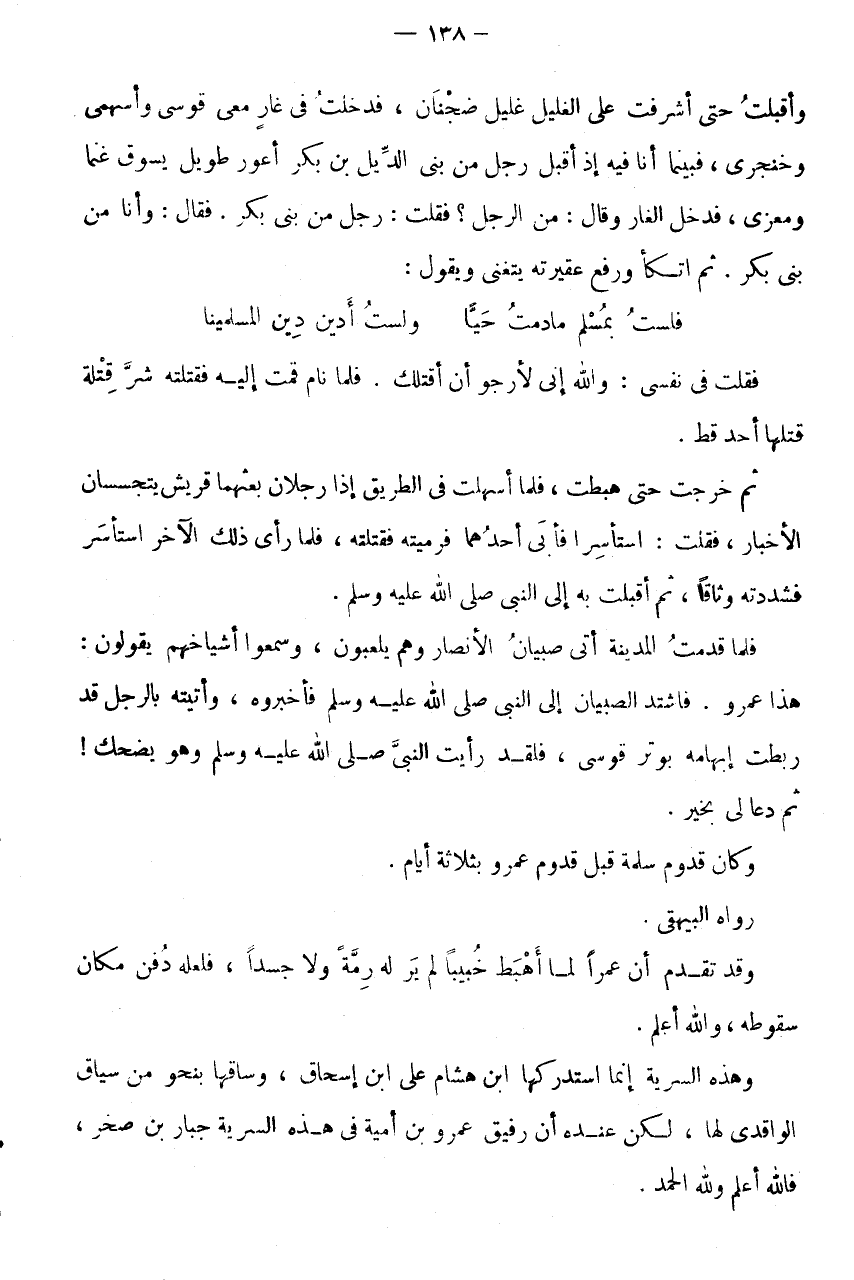 — ١٣٨ —
وأقبلتُ حتى أشرفت على الغليل غليل ضَجْنَان ، فدخلتُ فى غارٍ معى قوسى وأسهمى
وخنجرى ، فبينما أنا فيه إذ أقبل رجل من بنى الدِّيل بن بكر أعور طويل يسوق غنما
ومعزى ، فدخل الغار وقال : من الرجل ؟ فقلت : رجل من بنى بكر . فقال : وأنا من
بنى بكر . ثم اتكأ ورفع عقيرته يتغنى ويقول :
فلستُ بمُسْلم مادمتُ حَيًّا ولستُ أَدين دِين المسلمينا
فقلت فى نفسى : والله إنى لأرجو أن أقتلك . فلما نام قمت إليه فقتلته شرَّ قِتْلة
قتلها أحد قط .
ثم خرجت حتى هبطت ، فلما أسهلت فى الطريق إذا رجلان بعثهما قريش يتجسسان
الأخبار ، فقلت : استأسِرا فأبَى أحدُهما فرميته فقتلته ، فلما رأى ذلك الآخر استأسَر
فشددته وثاقاً ، ثم أقبلت به إلى النبى صلى الله عليه وسلم .
فلما قدمتُ المدينة أتى صبيانُ الأنصار وهم يلعبون ، وسمعوا أشياخهم يقولون :
هذا عمرو . فاشتد الصبيان إلى النبى صلى الله عليه وسلم فأخبروه ، وأتيته بالرجل قد
ربطت إبهامه بوتر قوسى ، فلقد رأيت النبىَّ صلى الله عليه وسلم وهو يضحك !
ثم دعا لى بخير .
وكان قدوم سلمة قبل قدوم عمرو بثلاثة أيام .
رواه البيهقى .
وقد تقدم أن عمراً لما أَهْبَط خُبيباً لم يَر له رِمَّةً ولا جسداً ، فلعله دُفن مكان
سقوطه ، والله أعلم .
وهذه السرية إنما استدركها ابن هشام على ابن إسحاق ، وساقها بنحو من سياق
الواقدى لها ، لكن عنده أن رفيق عمرو بن أمية فى هذه السرية جبار بن صخر ،
فالله أعلم ولله الحمد .